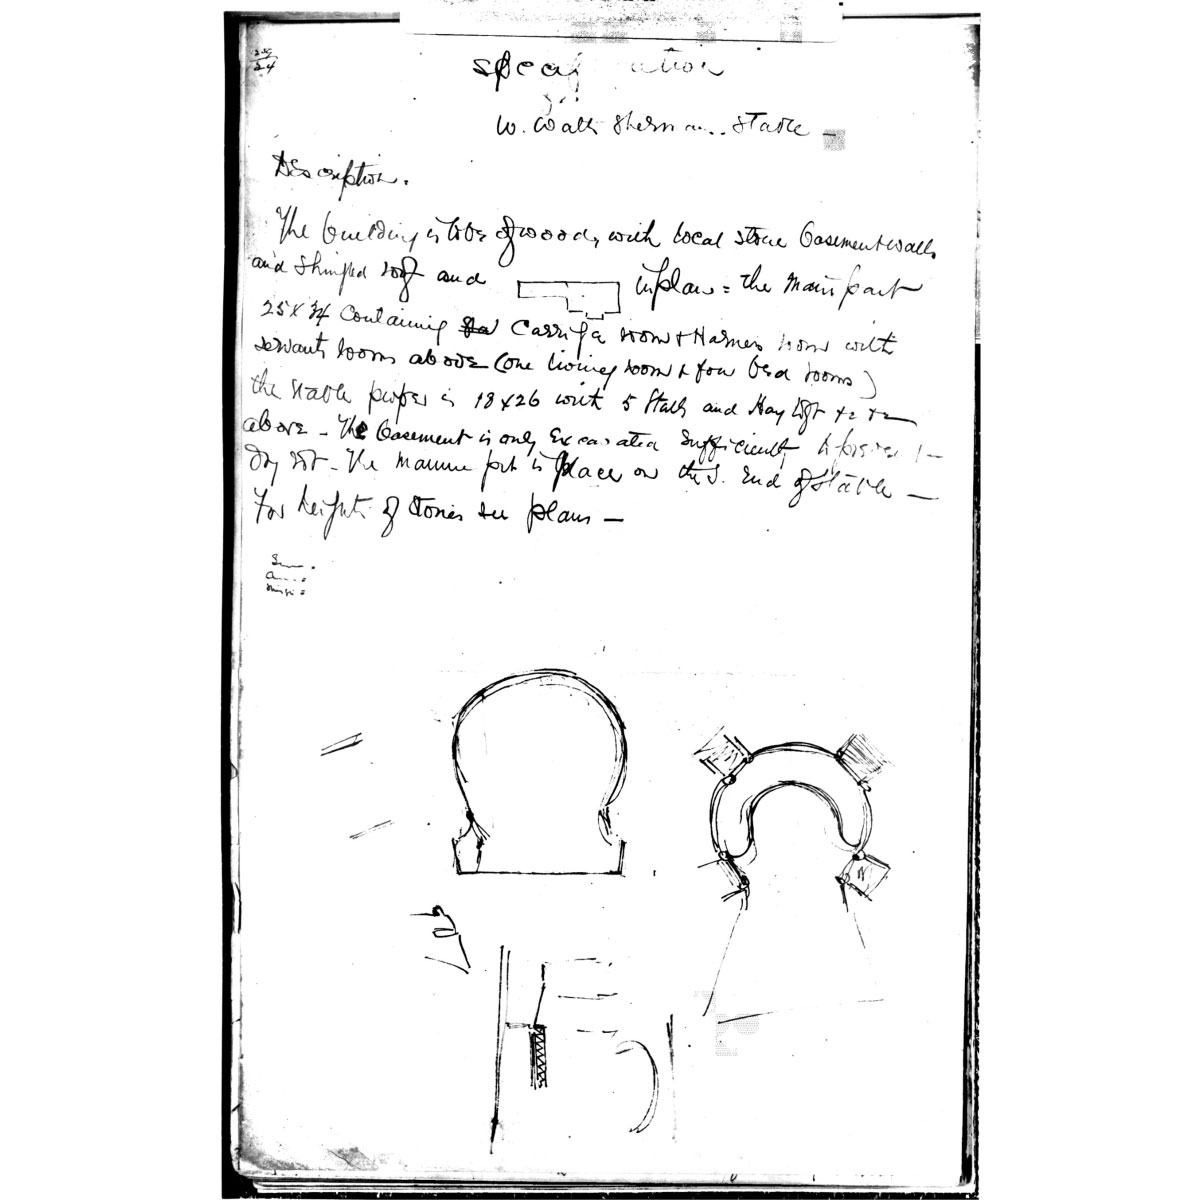 Specification
for
W. Watts Sherman Stable -
Description.
The building is to be of wood, with local stone basement walls
and shingled roof and in plan = the main part
25 x 34 containing Carriage room & Harness room with
servants rooms above (one living room & four bed rooms)
the stable proper is 18 x 26 with 5 Stalls and Hay loft
above - The basement is only excavated sufficiently to
dry rot - The manure pit is placed on the S. End of Stable -
For heights of Stories see plans -